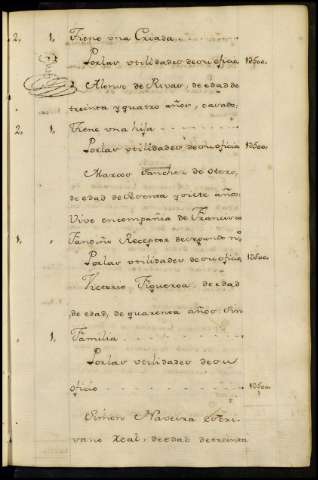 2, 1, Tiene una Criada
Por las utilidades de su oficio 1D500
Alonso de Rivas, de edad de
treinta y quatro años, casado,
2, 1, Tiene una hija
Por las utilidades de su oficio 1D500
Marcos Sanchez de Otero,
de edad de Noventa y siete años
Vive en compañia de Francisco
1, Receptor de segundo nº
Por las utilidades de su oficio 1D500
Victorio Figueroa, de edad
de edad, de quarenta años: sin
1, Familia
Por las utilidades de su
oficio 1D500
Simon Maveira Escri-
vano Real, de edad de treinta